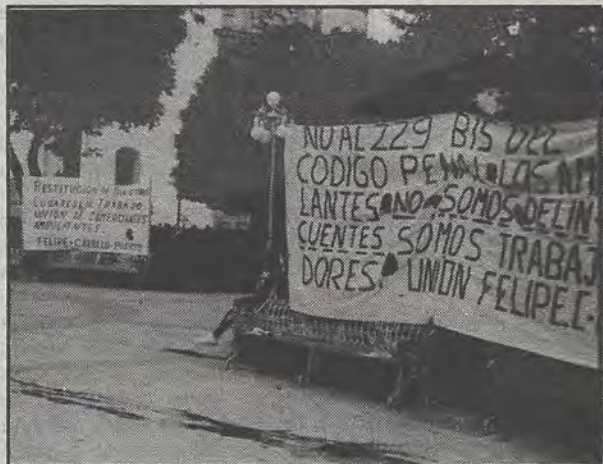 RESTITUCION DE NUESTROS
LUGARES DE TRABAJO
UNION DE COMERCIANTES
AMBULANTES
FELIPE CARRILLO PUERTO
NO AL 229 BIS DEL
CODIGO PENAL LOS AM
LANTES NO SOMOS DELIN
CUENTES SOMOS TRABAJ
DORES. UNION FELIPE C.